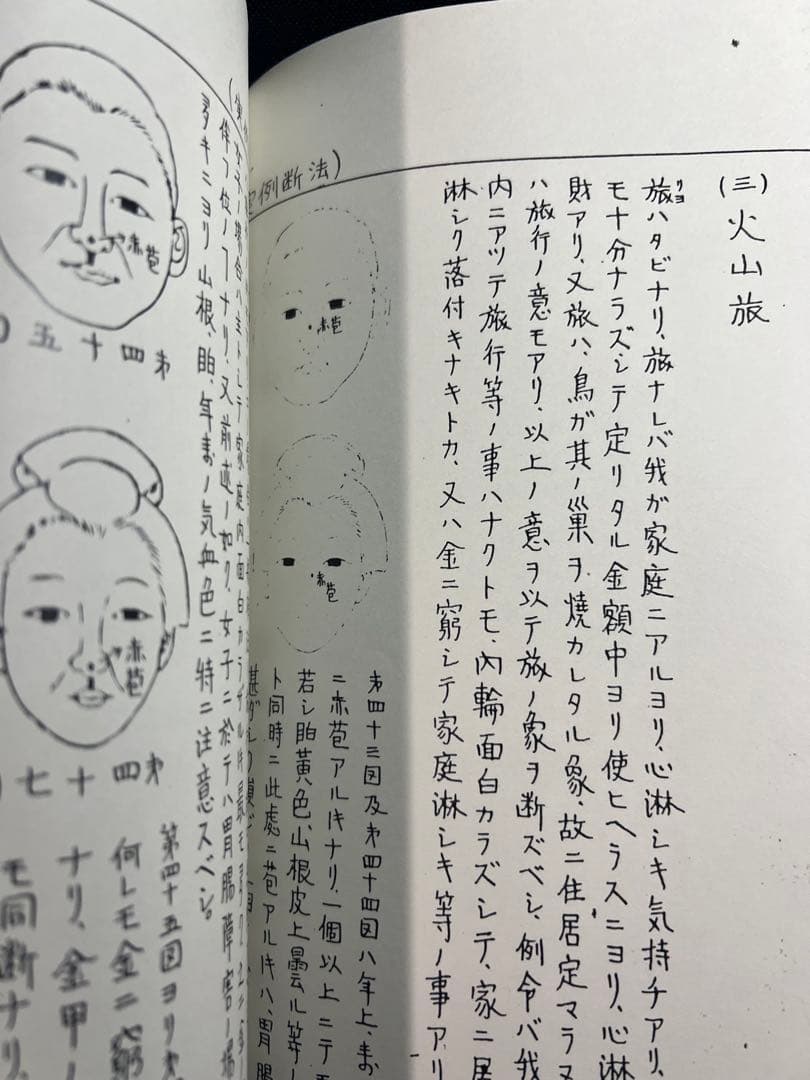 (三)火山旅
旅ハタビナリ、旅ナレバ我ガ家庭ニアルヨリ、心淋シキ気持チアリ、
モ十分ナラズシテ定リタル金額中ヨリ使ヒヘラスニヨリ、心淋
財アリ、又旅ハ、鳥ガ其ノ巣ヲ焼カレタル象、故ニ住居定マラヌ
ハ旅行ノ意モアリ、以上ノ意ヲ以テ旅ノ象ヲ断ズベシ、例令バ我
内ニアツテ旅行等ノ事ハナクトモ、内輪面白カラズシテ、家ニ居
淋シク落付キナキトカ、又ハ金ニ窮シテ家庭淋シキ等ノ事アリ
例断法)
赤苞
赤苞
第四十三図及第四十四図ハ年上、寿
ニ赤苞アルキナリ、一個以上ニテモ
若シ胎黄色、山根皮上曇ル等
ト同時ニ此處ニ苞アルキハ、胃腸
場合ハ主トシテ家庭内面白カラザル
位ノ了ナリ、又前述ノ如ク、女子ニ於テハ胃腸障害ノ場
多キニヨリ山根、胎、年寿ノ気血色ニ特ニ注意スベシ。
赤苞
第四十五
赤苞
第四十七
第四十五図ヨリ
何レモ金ニ窮
ナリ、金甲ノ
モ同断ナリ